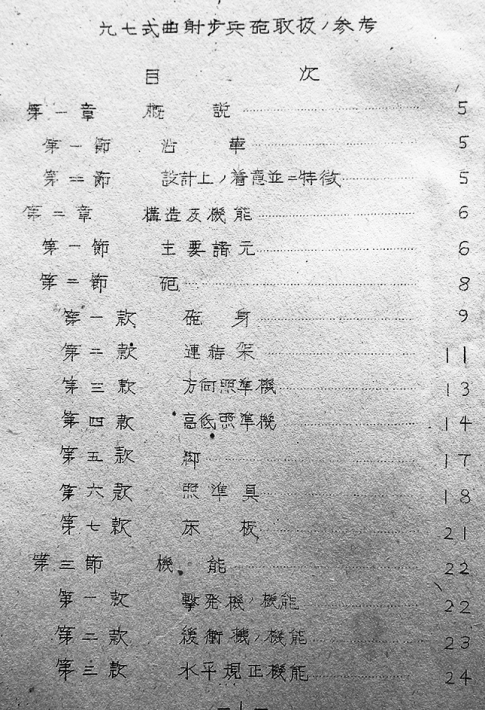 九七式曲射步兵砲取扱ノ参考
目 次
第一章 概説 5
第一節 沿革 5
第二節 設計上ノ着意並ニ特徴 5
第二章 構造及機能 6
第一節 主要諸元 6
第二節 砲 8
第一款 砲身 9
第二款 連結架 11
第三款 方向照準機 13
第四款 高低照準機 14
第五款 脚 17
第六款 照準具 18
第七款 床板 21
第三節 機能 22
第一款 撃発機ノ機能 22
第二款 緩衝機ノ機能 23
第三款 水平規正機能 24
— 1 —